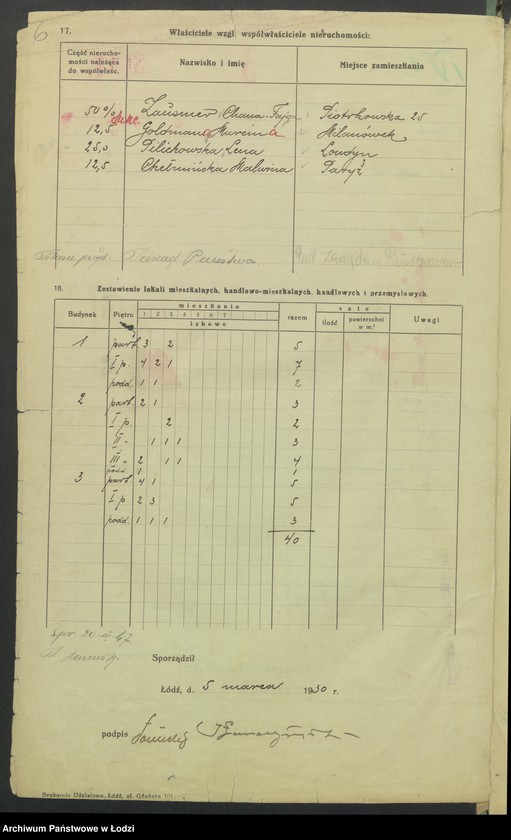 6
17. Właściciele wzgl. współwłaściciele nieruchomości:
Część nierucho-
mości należąca
do współwłaśc.
Nazwisko i imię
Miejsce zamieszkania
50% Zausmer Chana-Fajga Piotrkowska 25
12,5 Goldmann Marcin Milanówek
25,0 Pilichowska Lena Londyn
12,5 Chełmińska Malwina Paryż
Zarząd Państwa.
Pod Zarządem Państwowym
18. Zestawienie lokali mieszkalnych, handlowo-mieszkalnych, handlowych i przemysłowych.
Budynek Piętro mieszkania razem sale Uwagi
1 2 3 4 5 6 7
izbowe
ilość powierzchni w m.²
1 part. 3 2 5
I p. 4 2 1 7
podd. 1 1 2
2 part. 2 1 3
I p 2 2
II " 1 1 1 3
III " 2 1 1 4
podd. 1 1
3 part. 4 1 5
I p 2 3 5
podd. 1 1 1 3
40
spr. 20-III-47
Sporządził
Łódź, d. 5 marca 1930 r.
podpis
Drukarnia Udziałowa, Łódź, ul. Gdańska 101
Archiwum Państwowe w Łodzi